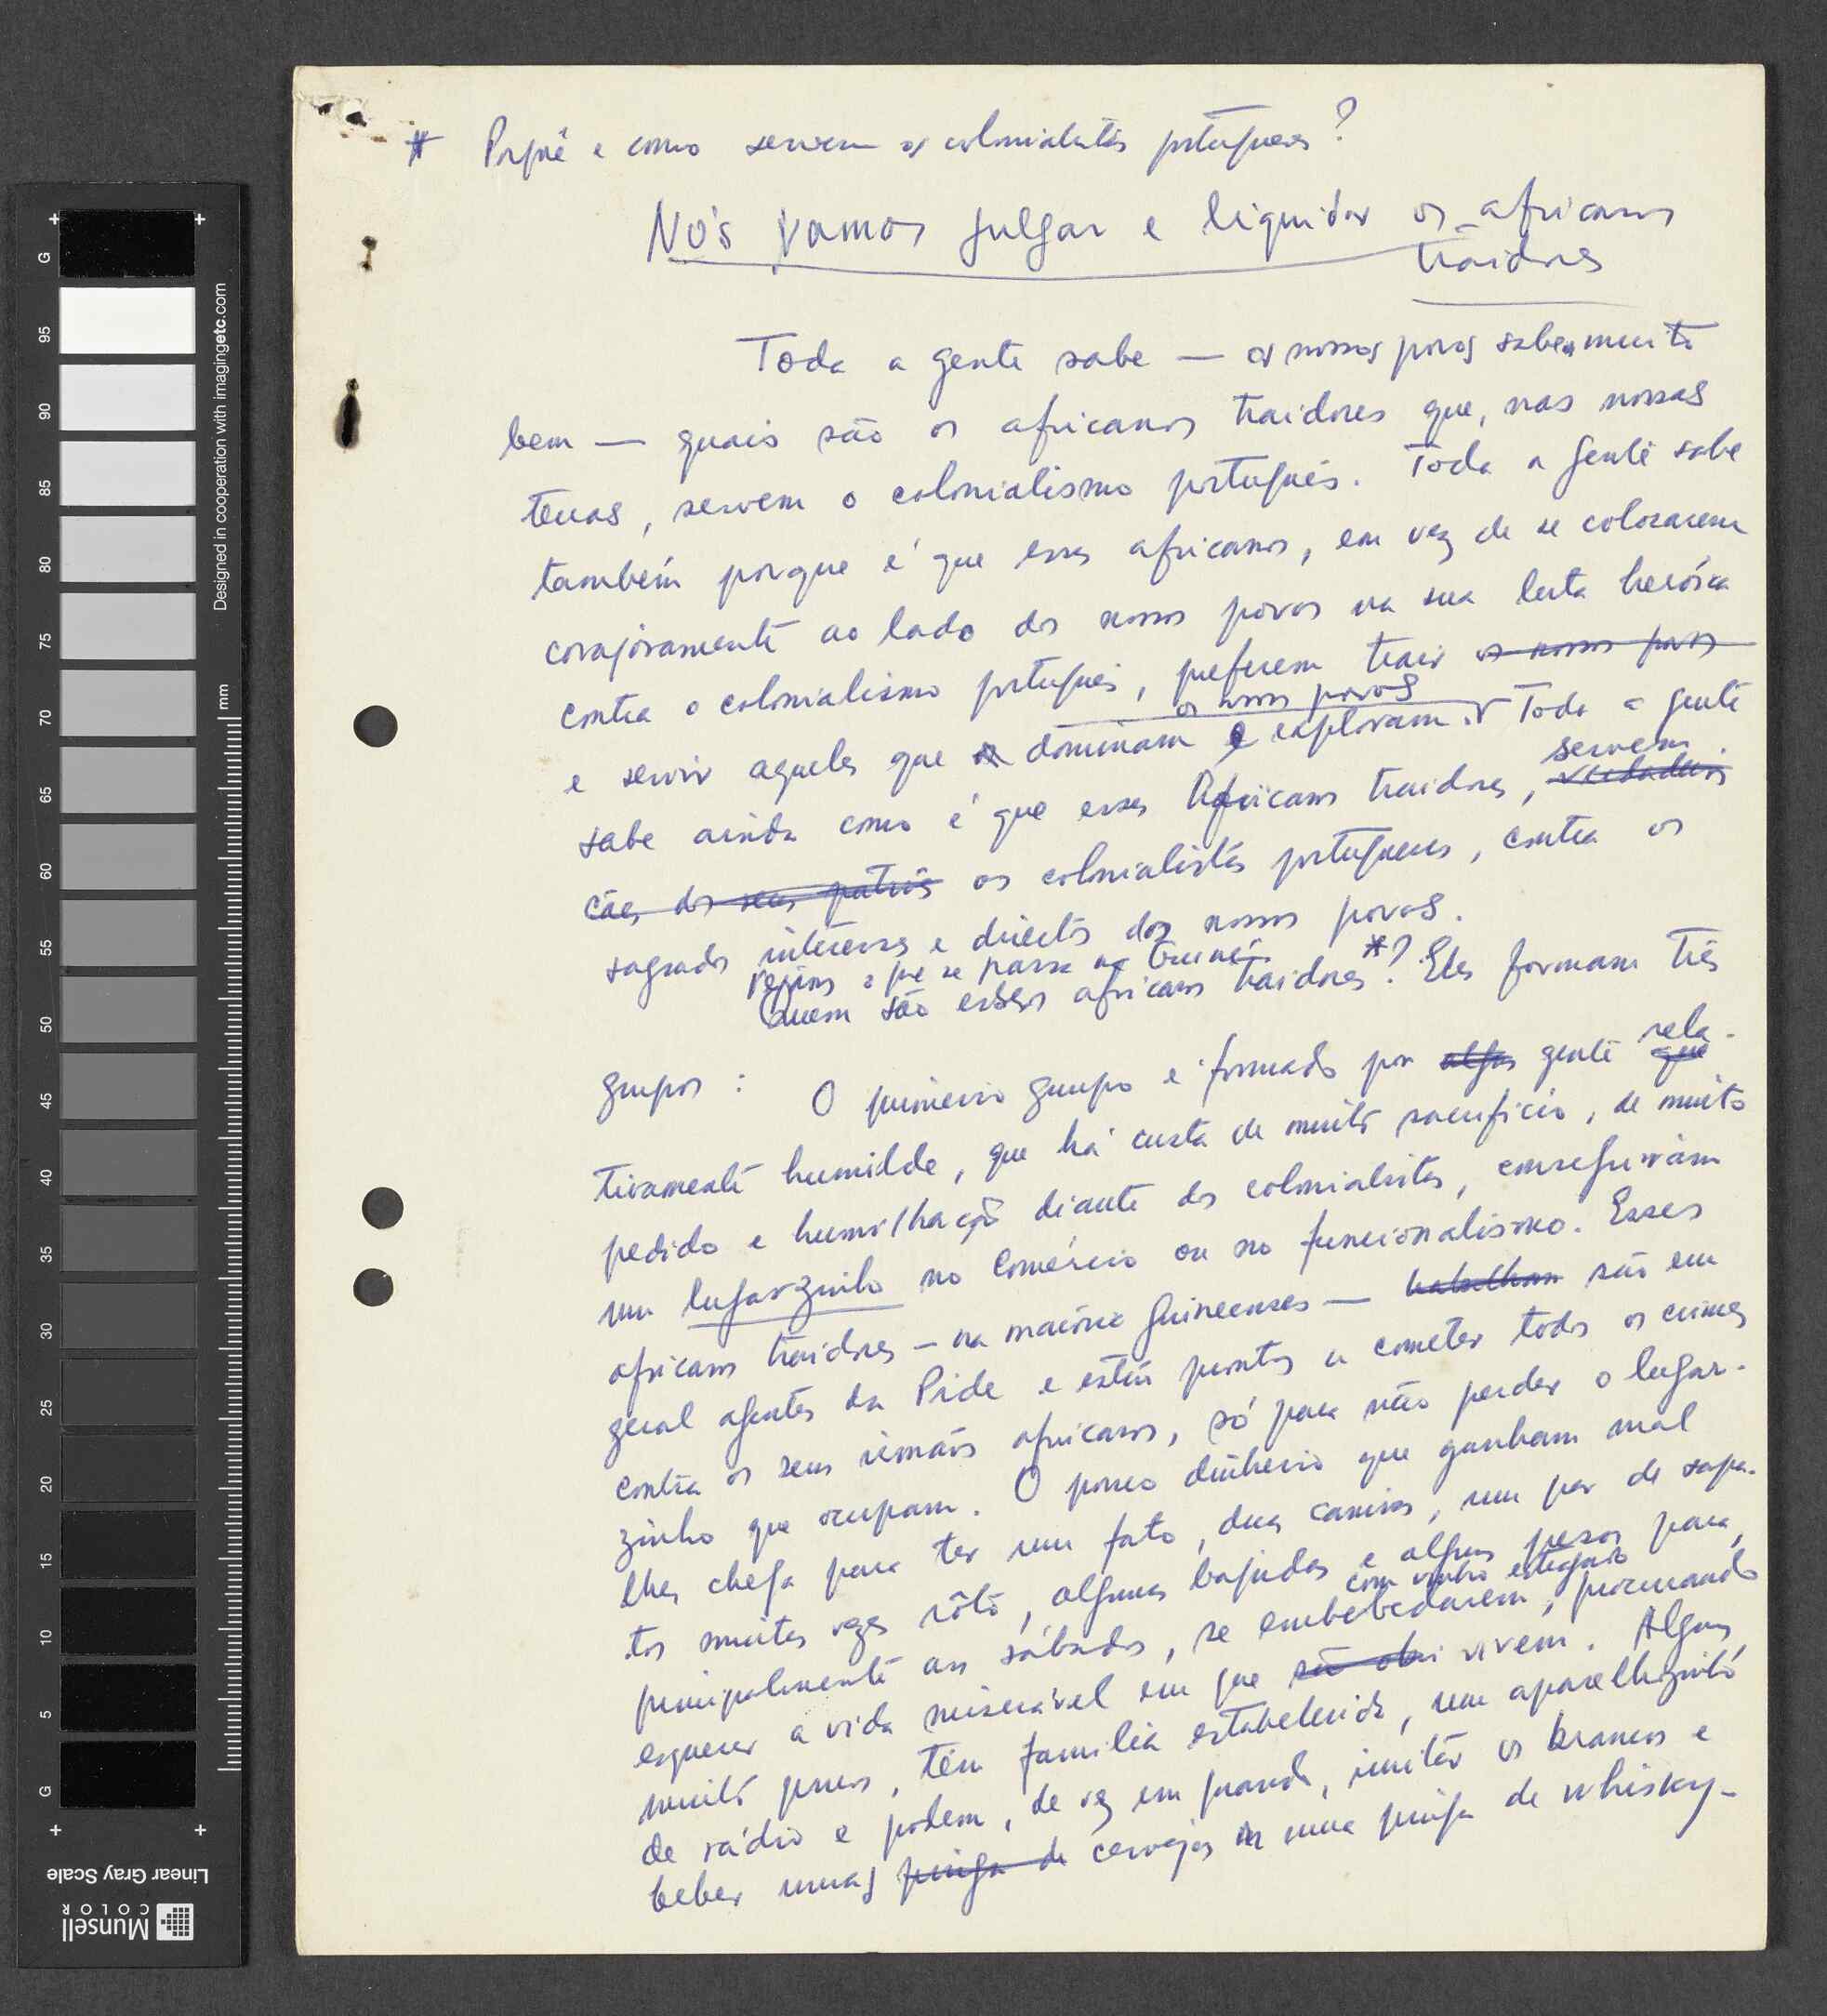 * Porquê e como servem os colonialistas portugueses?
Nós vamos julgar e liquidar os africanos
traidores
Toda a gente sabe — os nossos povos sabem muito
bem — quais são os africanos traidores que, nas nossas
terras, servem o colonialismo português. Toda a gente sabe
também porque é que esses africanos, em vez de se colocarem
corajosamente ao lado dos nossos povos na sua luta heróica
contra o colonialismo português, preferem trair os nossos povos
os nossos povos
e servir aqueles que dominam e exploram. Toda a gente
servem
sabe ainda como é que esses africanos traidores, verdadeiros
cães dos seus patrões os colonialistas portugueses, contra os
sagrados interesses e direitos dos nossos povos.
Vejamos o que se passa na Guiné.
Quem são esses africanos traidores *? Eles formam três
grupos:
rela-
O primeiro grupo é formado por gente que
tivamente humilde, que há custa de muito sacrifício, de muito
pedido e humilhação diante dos colonialistas, conseguiram
um lugarzinho no comércio ou no funcionalismo. Esses
africanos traidores — na maioria guineenses — trabalham são em
geral agentes da Pide e estão prontos a cometer todos os crimes
contra os seus irmãos africanos, só para não perder o lugar-
zinho que ocupam. O pouco dinheiro que ganham mal
lhes chega para ter um fato, duas camisas, um par de sapa-
tos muitas vezes rôto, algumas bajudas e alguns pesos para,
com vinho estragado
principalmente aos sábados, se embebedarem, procurando
esquecer a vida miserável em que vivem. Alguns,
muito poucos, têm família estabelecida, um aparelhozinho
de rádio e podem, de vez em quando, imitar os brancos e
beber umas pinga de cervejas ou uma pinga de whisky-
Designed in cooperation with imagingetc.com
mm
G 95 90 85 80 75 70 65 60 55 50 45 40 35 30 25 20 15 10 5 G
Linear Gray Scale
Munsell
COLOR